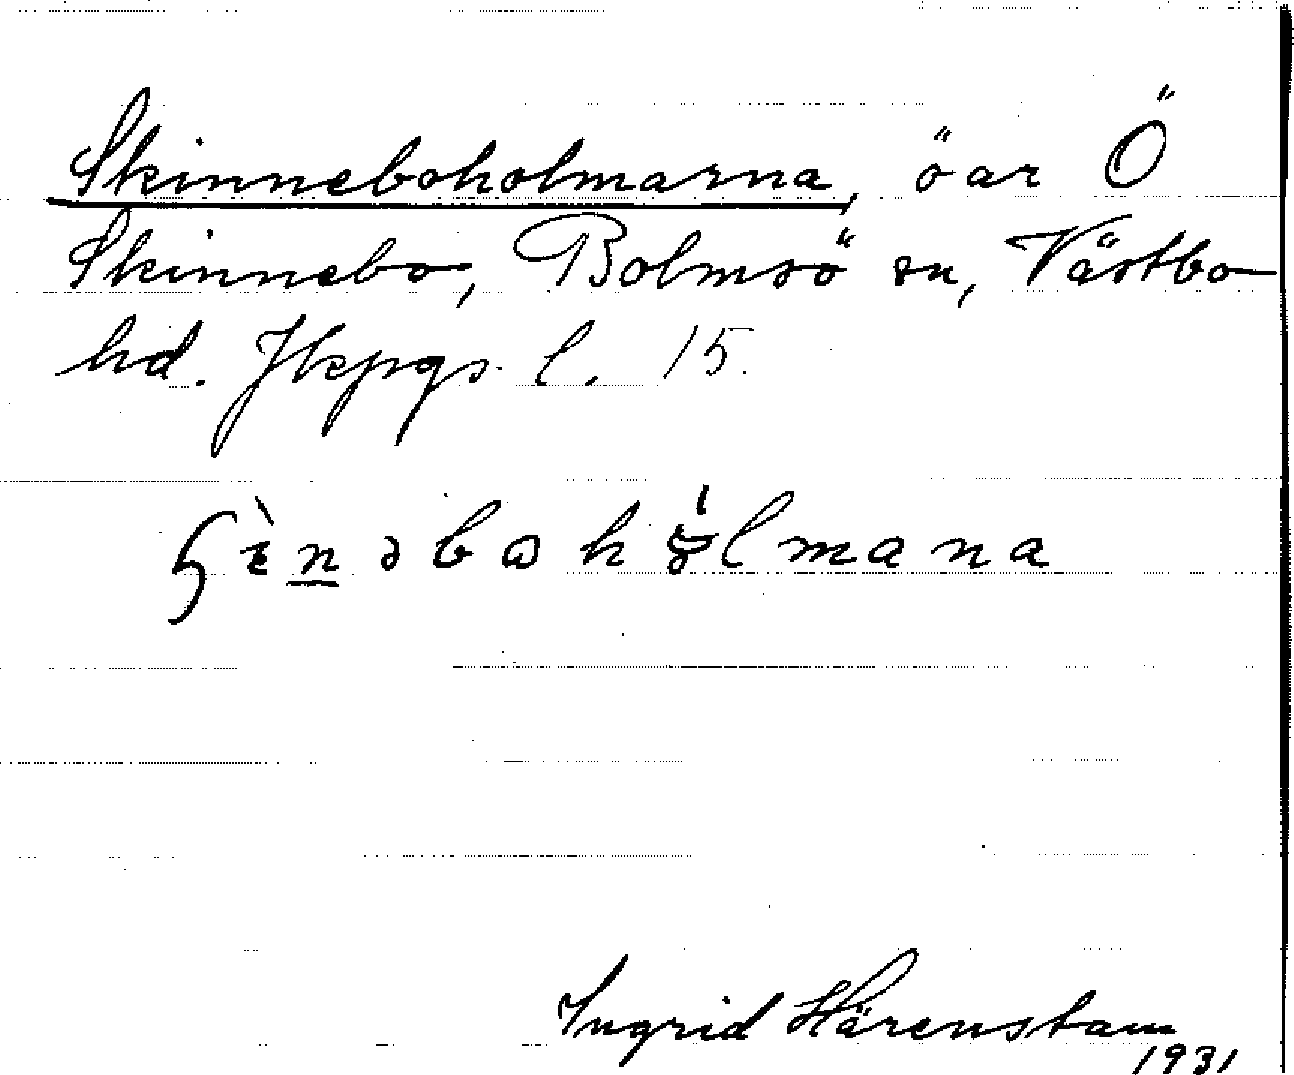 Skinneboholmarna, öar Ö
Skinnebo, Bolmsö sn, Västbo
hd. Jkpgs l. 15.
Ingrid Härenstam
1931